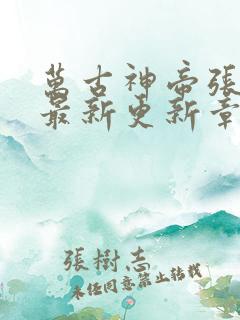 萬古神帝張
最新更新章
張樹志
未经同意禁止转载